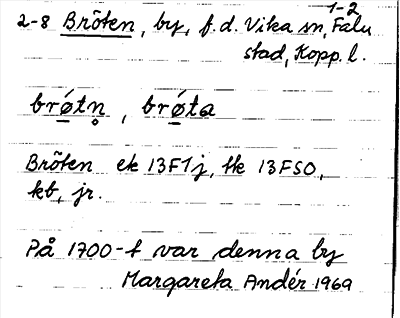 1-2
2-8 Bröten, by, f.d. Vika sn, Falu
stad, Kopp. l.
brǿtn̥, brǿta
Bröten ek 13F1j, tk 13FSO,
kb, jr.
På 1700-t var denna by
Margareta Andér 1969